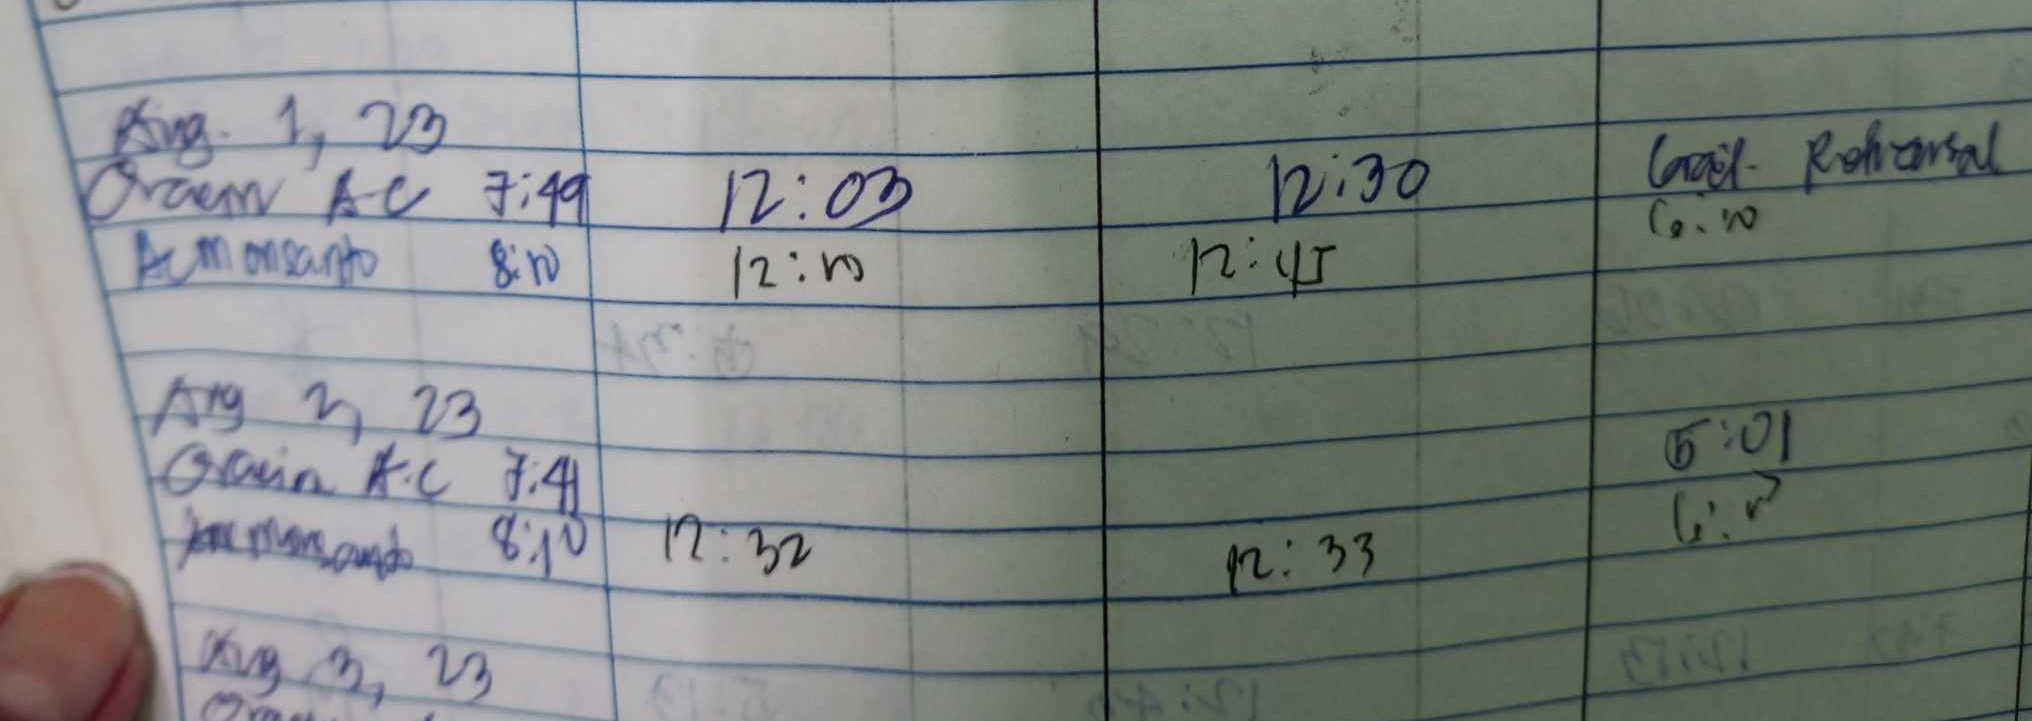 Aug. 1, 23
Oraein A-C 7:49 12:03 12:30 Rehearsal
Acmonsanto 8:10 12:10 12:45 6:10
Aug 2, 23
Orain A.C 7:41 5:01
monsanto 8:10 12:32 12:33
Aug 3, 23